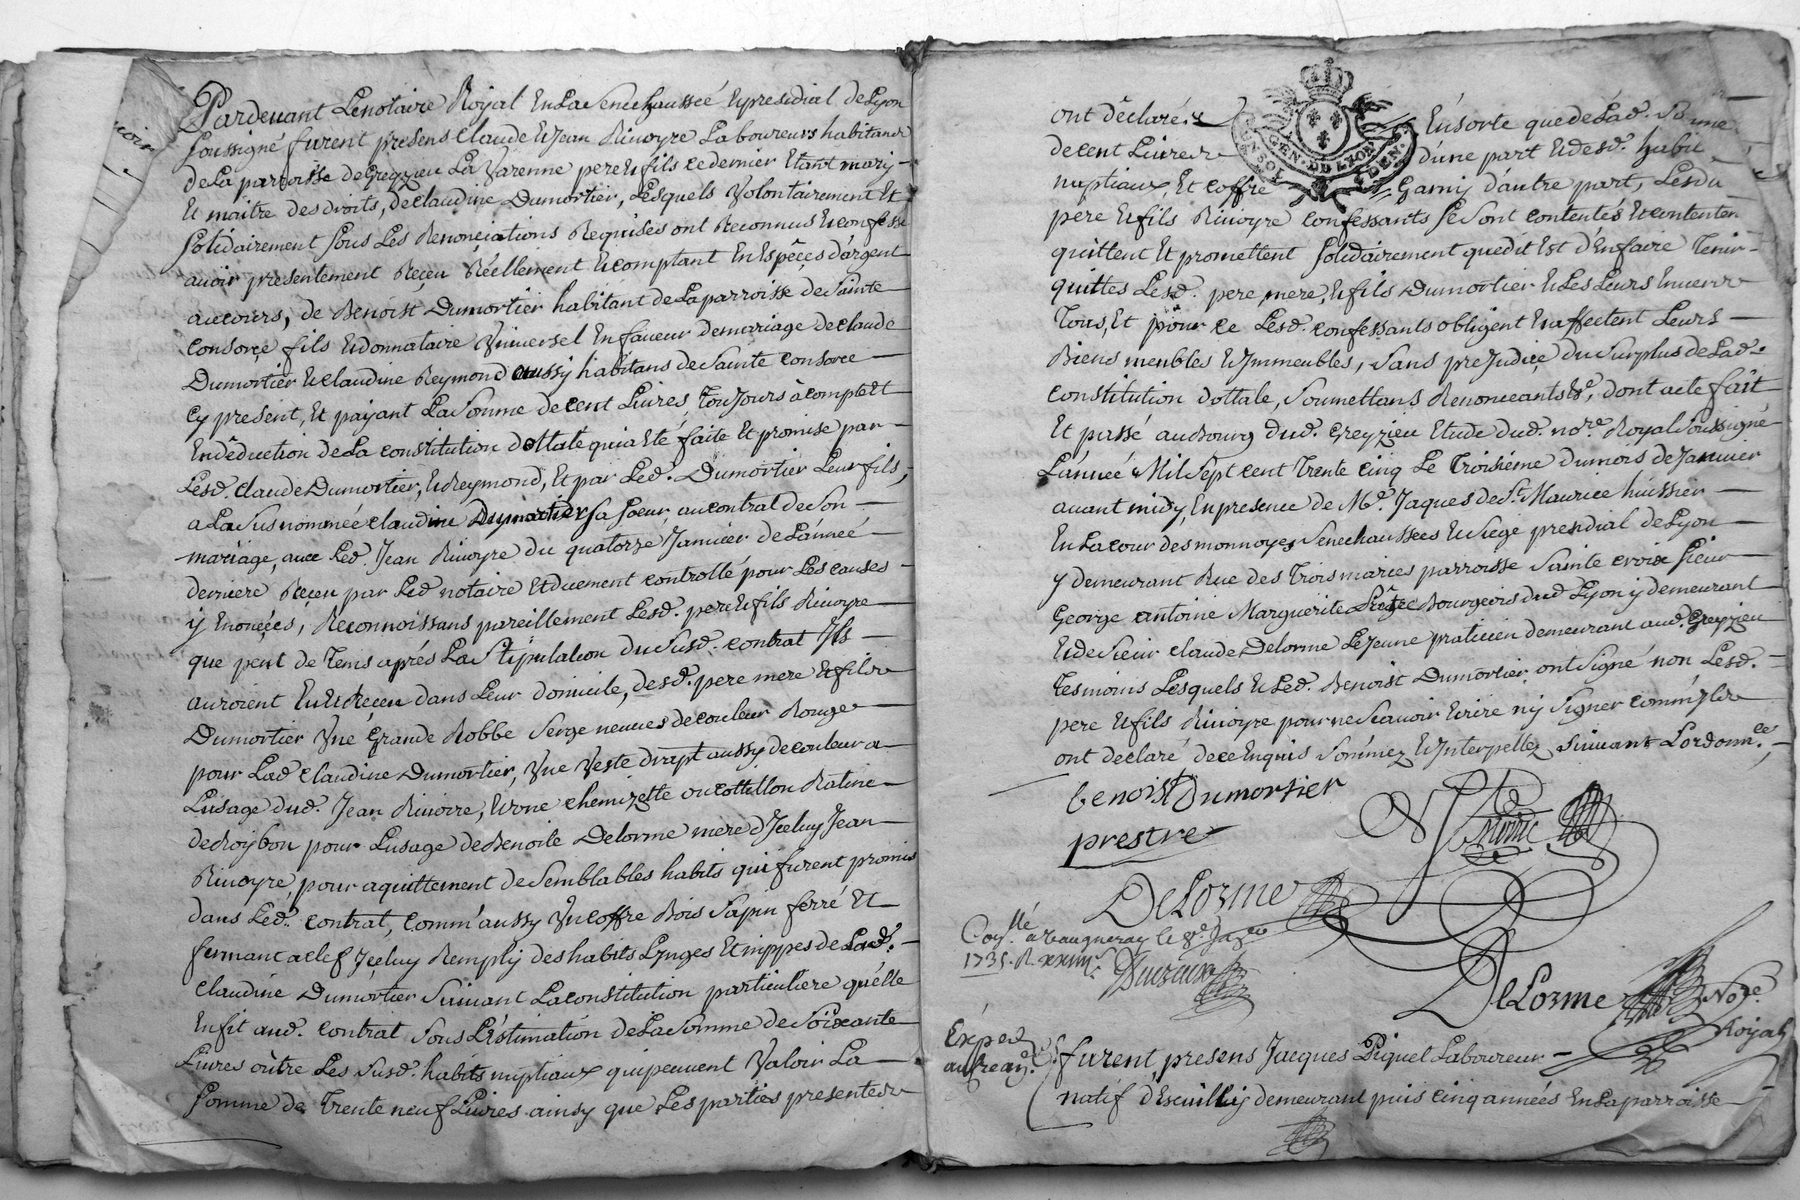 Pardevant Lenotaire Royal En La Senechaussée Et presidial de Lyon
Soussigné furent presens Claude Et Jean Rivoyre Laboureurs habitans
de La parroisse de Greyzieu La Varenne pere Et fils ce dernier Etant mary
Et maitre des droits, de claudine Dumortier, Lesquels Volontairement Et
Solidairement Sous Les Renonciations Requises ont Reconnus Et confessé
avoir presentement Reçeu Réellement Et comptant En Espêçes d'argent
aucours, de Benoist Dumortier habitant de La parroisse de Sainte
Consorçe fils Et donnataire Vniversel En faveur de mariage de claude
Dumortier Et claudine Reymond aussy habitans de Sainte Consorce
cy present, Et payant La Somme de cent Livres, Toujours à compte Et
En dêduction de La constitution dottale qui a Eté faite Et promise par
Lesd. claude Dumortier, Et Reymond, Et par Led. Dumortier Leur fils,
a La Susnommée claudine Dumortier Sa Soeur au contrat de Son
mariage, avec Led. Jean Rivoyre du quatorze Janvier de L'année
derniere Reçeu par Led notaire Et duement controllé pour Les causes
y Enonçées, Reconnoissans pareillement Lesd. pere Et fils Rivoyre
que peut de Tems aprés La Stipulation du Susd. contrat Ils
auroient Eu Et Reçeu dans Leur domicile, desd. pere mere Et fils
Dumortier Vne Grande Robbe Serge neuves de couleur Rouge
pour Lad claudine Dumortier, Vne Veste drapt aussy de couleur a
Lusage dud. Jean Rivoire, Et vne chemizette ou cottillon Ratine
de Roybon pour Lusage de Benoite Delorme mere d'Jceluy Jean
Rivoyre, pour aquittement de Semblables habits qui furent promis
dans Led. contrat, comm'aussy Vn coffre Bois Sapin ferré Et
fermant a clef Jceluy Remply des habits Linges Et nippes de Lad.
claudine Dumortier Suivant La constitution particuliere qu'elle
En fit aud. contrat Sous L'Estimation de La Somme de Soixante
Livres oûtre Les Susd. habits nuptiaux qui peuvent Valoir La
Somme de Trente neuf Livres ainsy que Les parties presentes
ont dêclaré
En sorte que de Lad. Somme
de cent Livres
d'une part Et desd. habits
nuptiaux Et coffre
Garny d'autre part, Lesd
pere Et fils Rivoyre confessants Se Sont contentés Et contentent
quittent Et promettent Solidairement que dit Est d'En faire Tenir
quittes Lesd. pere, mere, Et fils Dumortier Et Les Leurs Envers
Tous, Et pour ce Lesd. confessants obligent Et affectent Leurs
Biens meubles Et Jmmeubles, Sans prejudiçe du Surplus de Lad.
Constitution dottale, Soumettans Renonceants &c, dont acte fait
Et passé au Bourg dud. Greyzieu Etude dud. no.re Royal Soussigné
L'année Mil Sept cent Trente cinq Le Troisiéme du mois de Janvier
avant midy, En presence de M.e Jaques de S.t Maurice huissier
En La cour des monnoyes Senechaussées Et Siege presidial de Lyon
y demeurant Rue des Trois maries parroisse Sainte croix Sieur
George antoine Marguerite Bourgeois dud Lyon y demeurant
Et de Sieur claude Delorme Le Jeune praticien demeurant aud. Greyzieu
Tesmoins Lesquels Et Led. Benoist Dumortier ont Signé non Lesd.
pere Et fils Rivoyre pour ne Scavoir Ecrire ny Signer comm'ils
ont declaré de ce Enquis Sommez Et Interpellez Suivant Lordonn.ce
benoist Dumortier
prestre
DeLorme
Con.llé a Vaugneray le 8.e
1735. R.
DeLorme No.re
Royal
furent, presens Jacques Piquet Laboureur
natif d'Escuilly demeurant puis cinq années En La parroisse